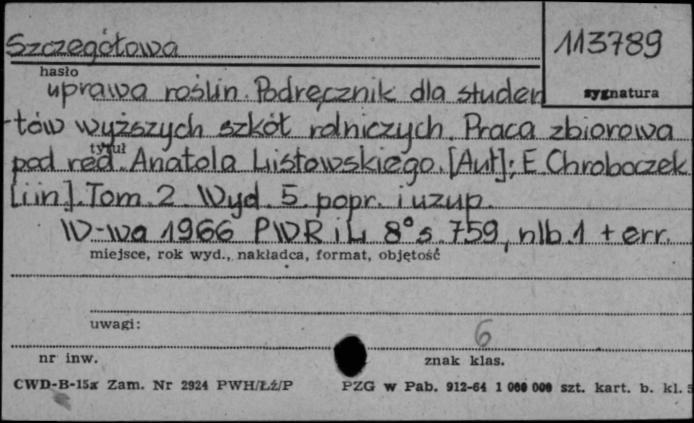 Szczegółowa
113789
hasło
sygnatura
uprawa roślin. Podręcznik dla studen
-tów wyższych szkół rolniczych. Praca zbiorowa
tytuł
pod red. Anatola Listowskiego. [Aut]: E. Chroboczek
[i in]. Tom. 2. Wyd. 5. popr. i uzup.
W-wa 1966 PWR i L 8° s. 759, nlb. 1 + err.
miejsce, rok wyd., nakładca, format, objętość
uwagi:
6
nr inw.
znak klas.
CWD-B-15a Zam. Nr 2924 PWH/Łż/P PZG w Pab. 912-64 1 000 000 szt. kart. b. kl.